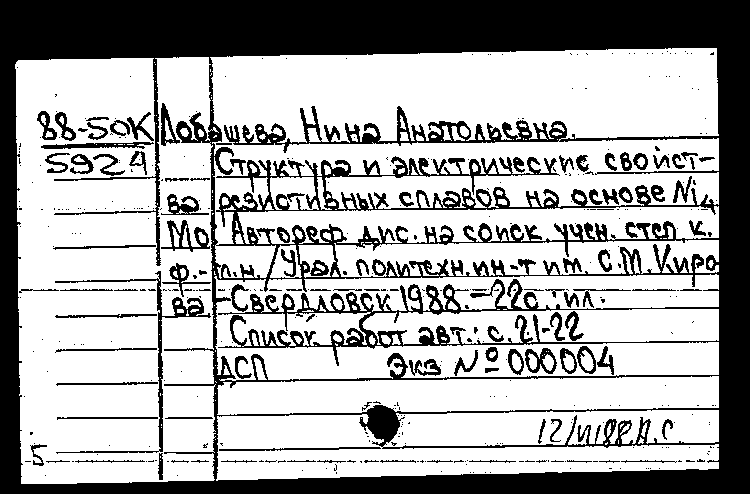 88-50К Лобашева, Нина Анатольевна.
592А Структура и электрические свойст-
ва резистивных сплавов на основе Ni4
Mo: Автореф. дис. на соиск. учен. степ. к.
ф.-м.н. / Урал. политехн. ин-т им. С.М. Киро
ва -Свердловск, 1988.-22с.: ил.
Список работ авт.: с. 21-22
ДСП Экз № 000004
5